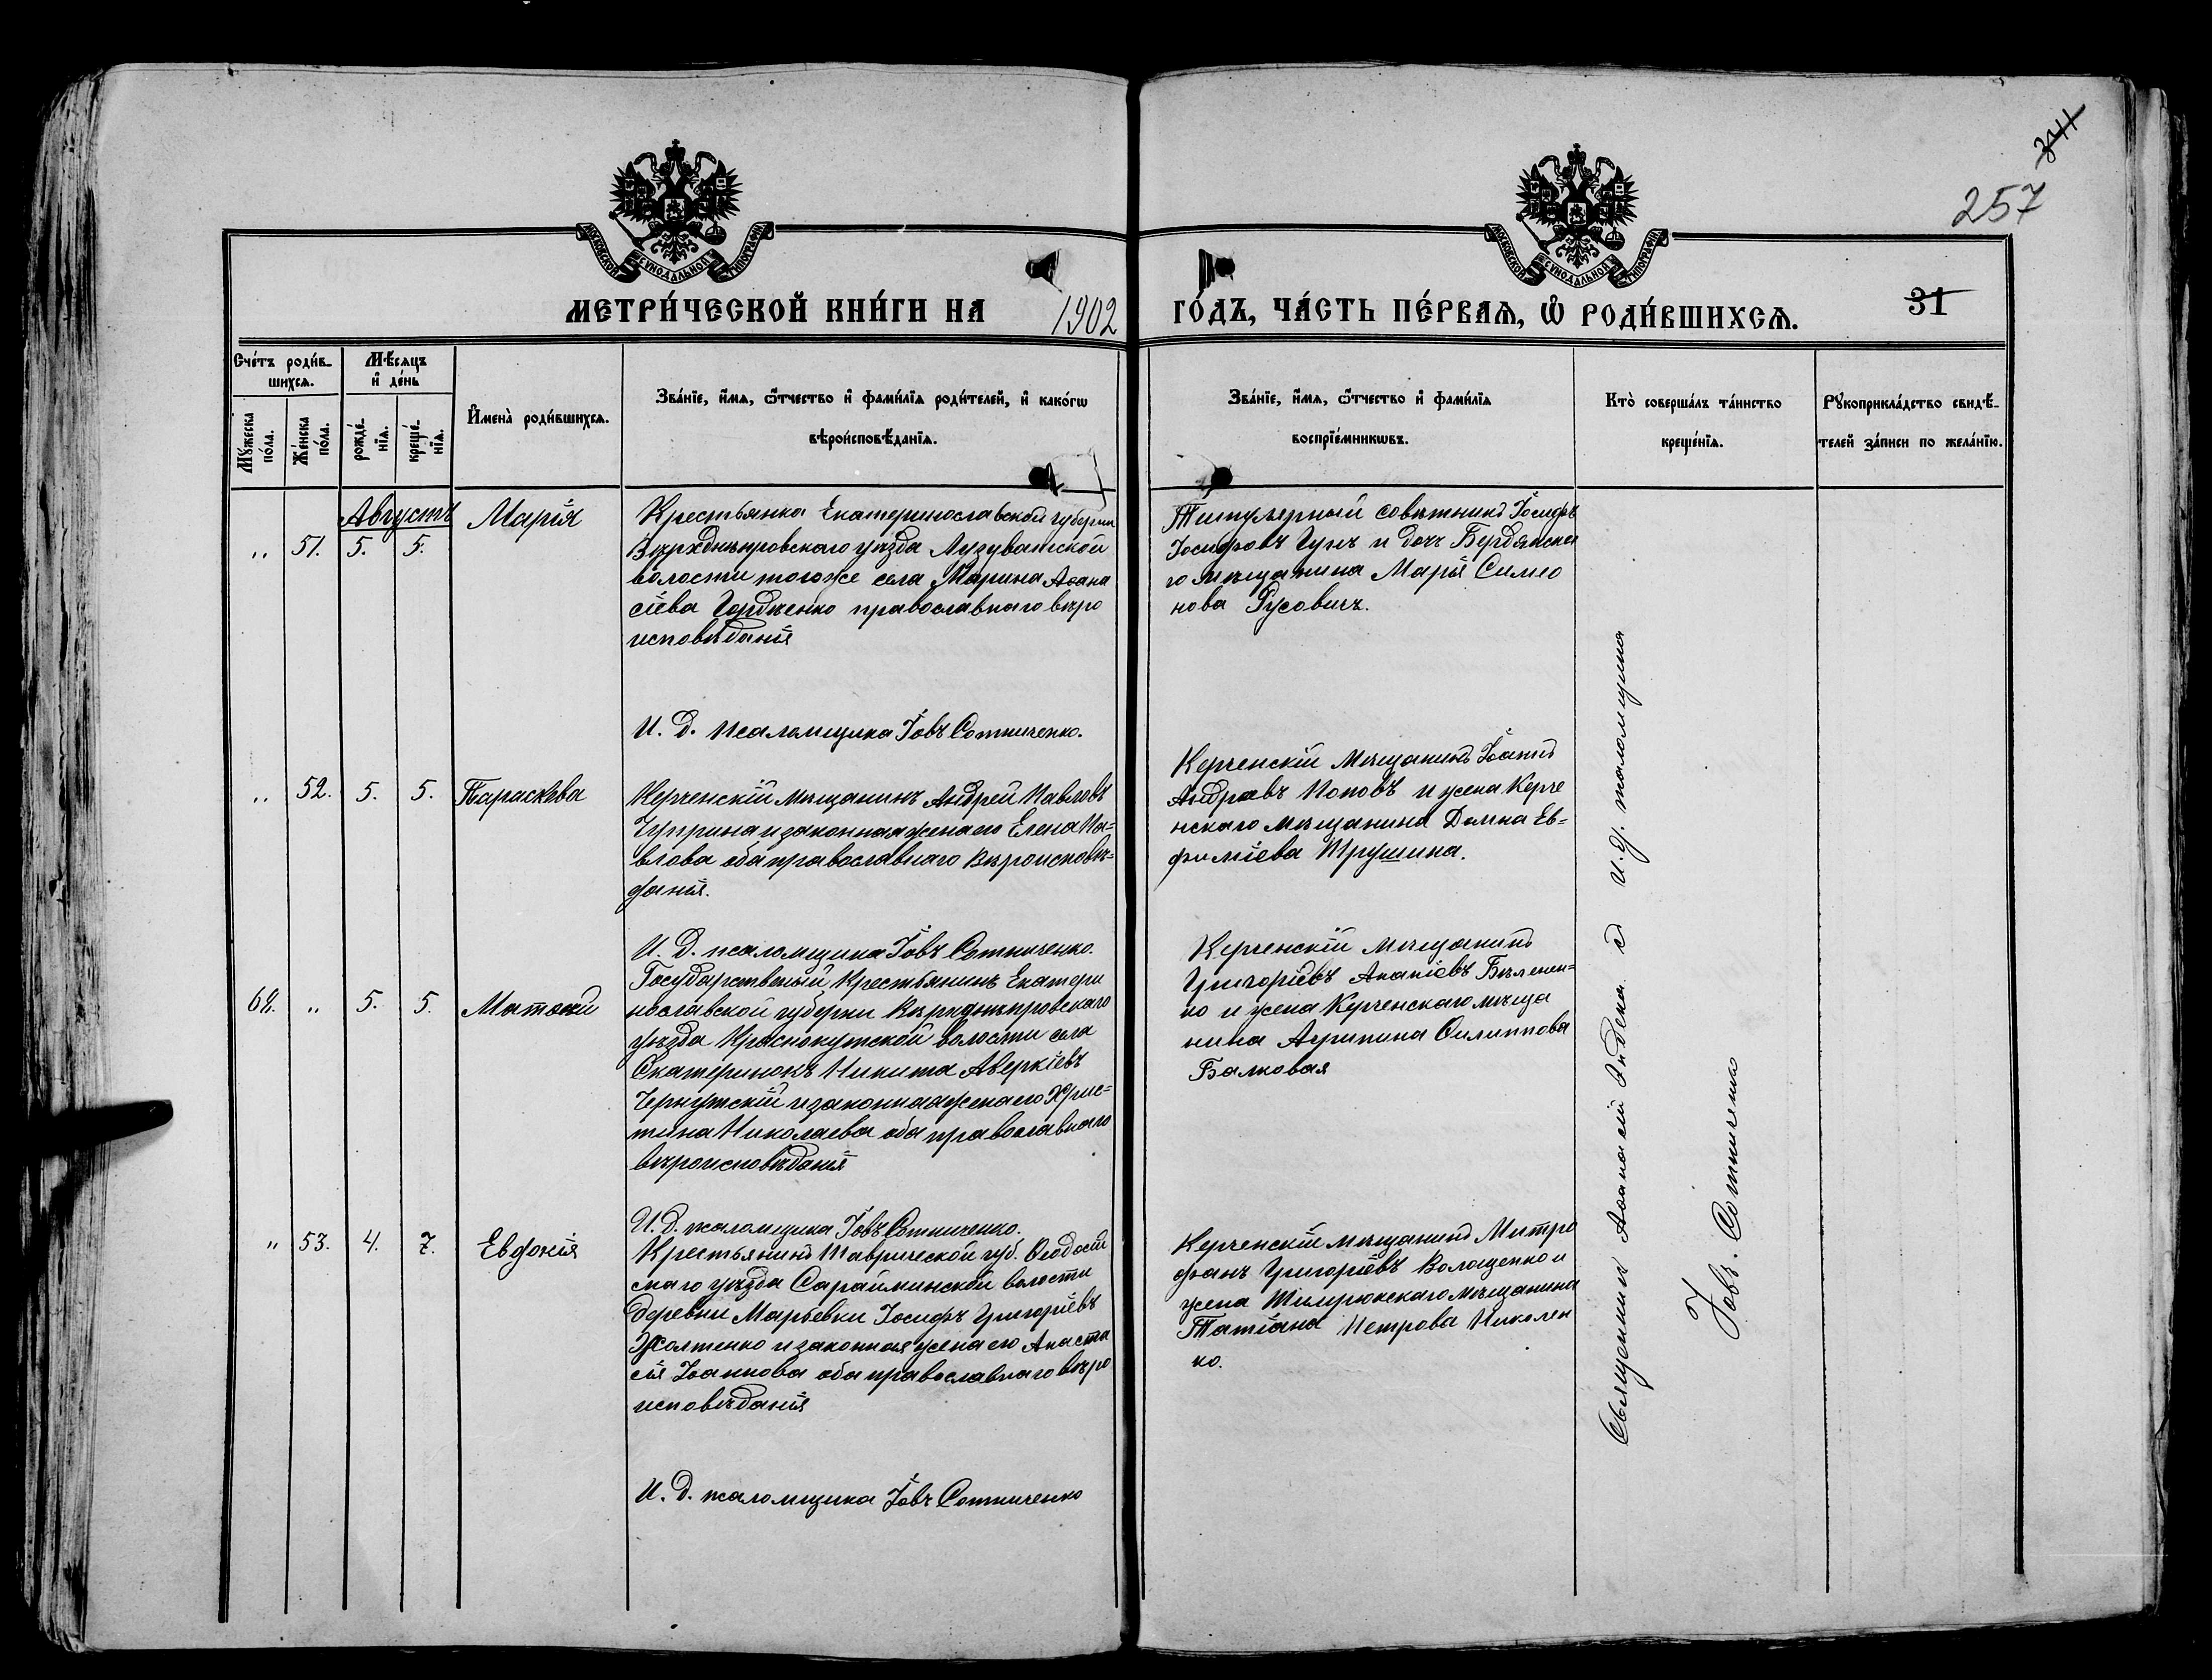 344
257
МОСКОВСКОЙ СУНОДАЛЬНОЙ ТИПОГРАФІИ
МОСКОВСКОЙ СУНОДАЛЬНОЙ ТИПОГРАФІИ
МЕТРИ́ЧЕСКОЙ КНИ́ГИ НА 1902 ГО́ДЪ, ЧА́СТЬ ПЕ́РВАѦ, Ѡ҆ РОДИ́ВШИХСѦ.
31
Сче́тъ роди́в-
шихсѧ.
Мꙋ́жеска
по́ла.
Же́нска
по́ла.
Мѣ́сѧцъ
и҆ де́нь
рожде́-
нїѧ.
креще́-
нїѧ.
И҆мена̀ роди́вшихсѧ.
Зва́нїе, и҆́мѧ, ѻ҆́тчество и҆ фами́лїѧ роди́телей, и҆ како́гѡ
вѣроисповѣ́данїѧ.
Зва́нїе, и҆́мѧ, ѻ҆́тчество и҆ фами́лїѧ
воспрїе́мникѡвъ.
Кто̀ соверша́лъ та́инство
креще́нїѧ.
Рꙋкоприкла́дство свидѣ́-
телей за́писи по жела́нїю.
Августъ
„ 51. 5. 5. Марія
Крестьянка Екатеринославской губерніи
Верхднѣпровскаго уѣзда Лузуватской
волости тогоже села Марина Аѳана
сіева Гордѣенко православнаго вѣро
исповѣданія
И. Д. Псаломщика Іовъ Сотниченко.
Титулярный совѣтникъ Іосифъ
Іосифовъ Гунъ и дочь Бердянска
го мѣщанина Марія Симео
нова Русовичъ.
„ 52. 5. 5. Параскева
Керченскій мѣщанинъ Андрей Павловъ
Чуприна и законная жена его Елена Па=
влова оба православнаго вѣроисповѣ=
данія.
И. Д. псаломщика Іовъ Сотниченко.
Керченскій мѣщанинъ Іоаннъ
Андреевъ Поповъ и жена Керче
нскаго мѣщанина Домна Ев=
фиміева Трушина.
68. „ 5. 5. Матѳей
Государственный Крестьянинъ Екатери
нославской губерніи Верхднѣпровскаго
уѣзда Краснокутской волости села
Екатеринокъ Никита Аверкіевъ
и законная жена его Хрис=
тина Николаева оба православнаго
вѣроисповѣданія
И. Д. псаломщика Іовъ Сотниченко.
Керченскій мѣщанинъ
Григоріевъ Ананіевъ Бѣленен=
ко и жена Керченскаго мѣща
нина Агрипина Филиппова
Балковая
„ 53. 4. 7. Евдокія
Крестьянинъ Таврической губ. Ѳеодосій
скаго уѣзда Сарайминской волости
деревни Марьевки Іосифъ Григоріевъ
Жолтенко и законная жена его Анаста
сія Іоаннова оба православнаго вѣро
исповѣданія
И. Д. псаломщика Іовъ Сотниченко
Керченскій мѣщанинъ Митро
фанъ Григоріевъ Волощенко и
жена Темрюкскаго мѣщанина
Татіана Петрова Николен
ко.
Священникъ Аѳанасій съ и.д. псаломщика
Іовъ. Сотниченко